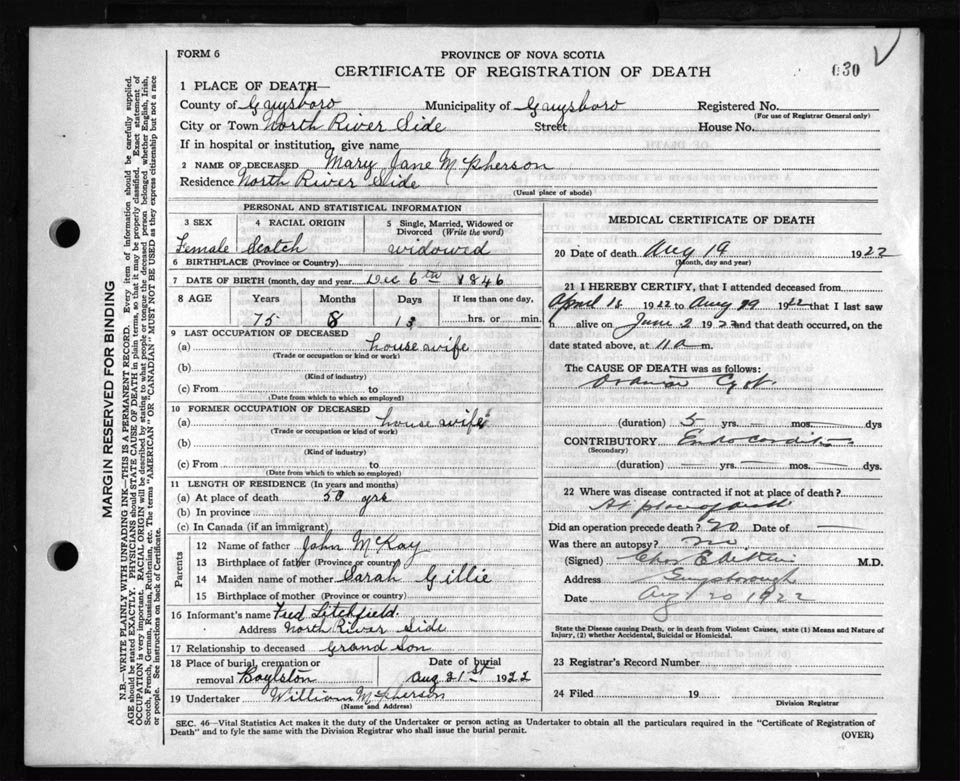 FORM 6
PROVINCE OF NOVA SCOTIA
CERTIFICATE OF REGISTRATION OF DEATH
030
1 PLACE OF DEATH—
County of Guysboro Municipality of Guysboro Registered No.
(For use of Registrar General only)
City or Town North River Side Street House No.
If in hospital or institution, give name
2 NAME OF DECEASED Mary Jane McPherson
Residence North River Side
(Usual place of abode)
PERSONAL AND STATISTICAL INFORMATION
3 SEX 4 RACIAL ORIGIN 5 Single, Married, Widowed or Divorced (Write the word)
Female Scotch widowed
6 BIRTHPLACE (Province or Country)
7 DATE OF BIRTH (month, day and year) Dec 6th 1846
8 AGE Years Months Days If less than one day,
75 8 13 hrs. or min.
9 LAST OCCUPATION OF DECEASED
(a) house wife
(Trade or occupation or kind or work)
(b)
(Kind of industry)
(c) From to
(Date from which to which so employed)
10 FORMER OCCUPATION OF DECEASED
(a) house wife
(Trade or occupation or kind of work)
(b)
(Kind of industry)
(c) From to
(Date from which to which so employed)
11 LENGTH OF RESIDENCE (In years and months)
(a) At place of death 50 yrs
(b) In province
(c) In Canada (if an immigrant)
Parents
12 Name of father John McKay
13 Birthplace of father (Province or country)
14 Maiden name of mother Sarah Gillie
15 Birthplace of mother (Province or country)
16 Informant's name Fred Litchfield.
Address North River Side
17 Relationship to deceased Grand Son
18 Place of burial, cremation or removal Boylston Date of burial Aug 21st 1922
19 Undertaker William McPherson
(Name and Address)
MEDICAL CERTIFICATE OF DEATH
20 Date of death Aug 19 1922
(Month, day and year)
21 I HEREBY CERTIFY, that I attended deceased from
April 18 1922 to Aug 19 1922 that I last saw
h alive on June 2 1922 and that death occurred, on the
date stated above, at 11 a m.
The CAUSE OF DEATH was as follows:
Ovarian Cyst
(duration) 5 yrs. — mos. — dys
CONTRIBUTORY Endocarditis
(Secondary)
(duration) — yrs. — mos. — dys.
22 Where was disease contracted if not at place of death?
At place of death
Did an operation precede death? no Date of —
Was there an autopsy? no
(Signed) M.D.
Address Guysborough
Date Aug 20 1922
State the Disease causing Death, or in death from Violent Causes, state (1) Means and Nature of
Injury, (2) whether Accidental, Suicidal or Homicidal.
23 Registrar's Record Number
24 Filed 19
Division Registrar
SEC. 46—Vital Statistics Act makes it the duty of the Undertaker or person acting as Undertaker to obtain all the particulars required in the "Certificate of Registration of
Death" and to fyle the same with the Division Registrar who shall issue the burial permit.
(OVER)
MARGIN RESERVED FOR BINDING
N.B.—WRITE PLAINLY WITH UNFADING INK—THIS IS A PERMANENT RECORD. Every item of information should be carefully supplied.
AGE should be stated EXACTLY. PHYSICIANS should STATE CAUSE OF DEATH in plain terms, so that it may be properly classified. Exact statement of
OCCUPATION is very important. RACIAL ORIGIN will be described by stating to what people or tongue the deceased person belonged whether English, Irish,
Scotch, French, German, Russian, Ruthenian, etc. The terms "AMERICAN" OR "CANADIAN" MUST NOT BE USED as they express citizenship but not a race
or people. See instructions on back of Certificate.